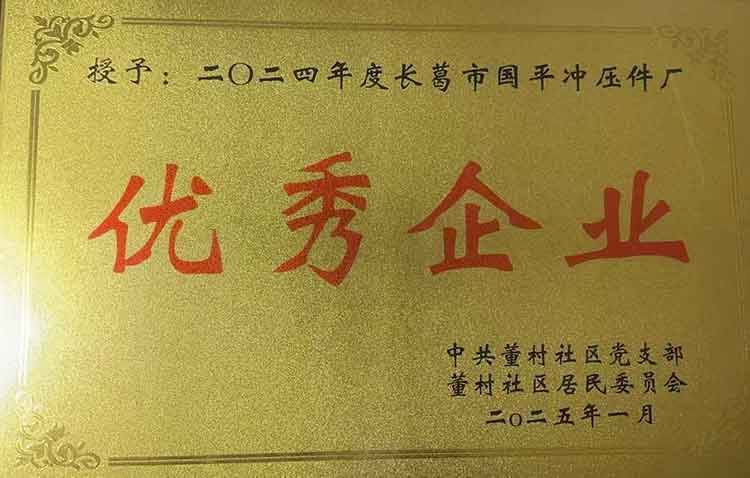 授予：二〇二四年度长葛市国平冲压件厂
优秀企业
中共董村社区党支部
董村社区居民委员会
二〇二五年一月